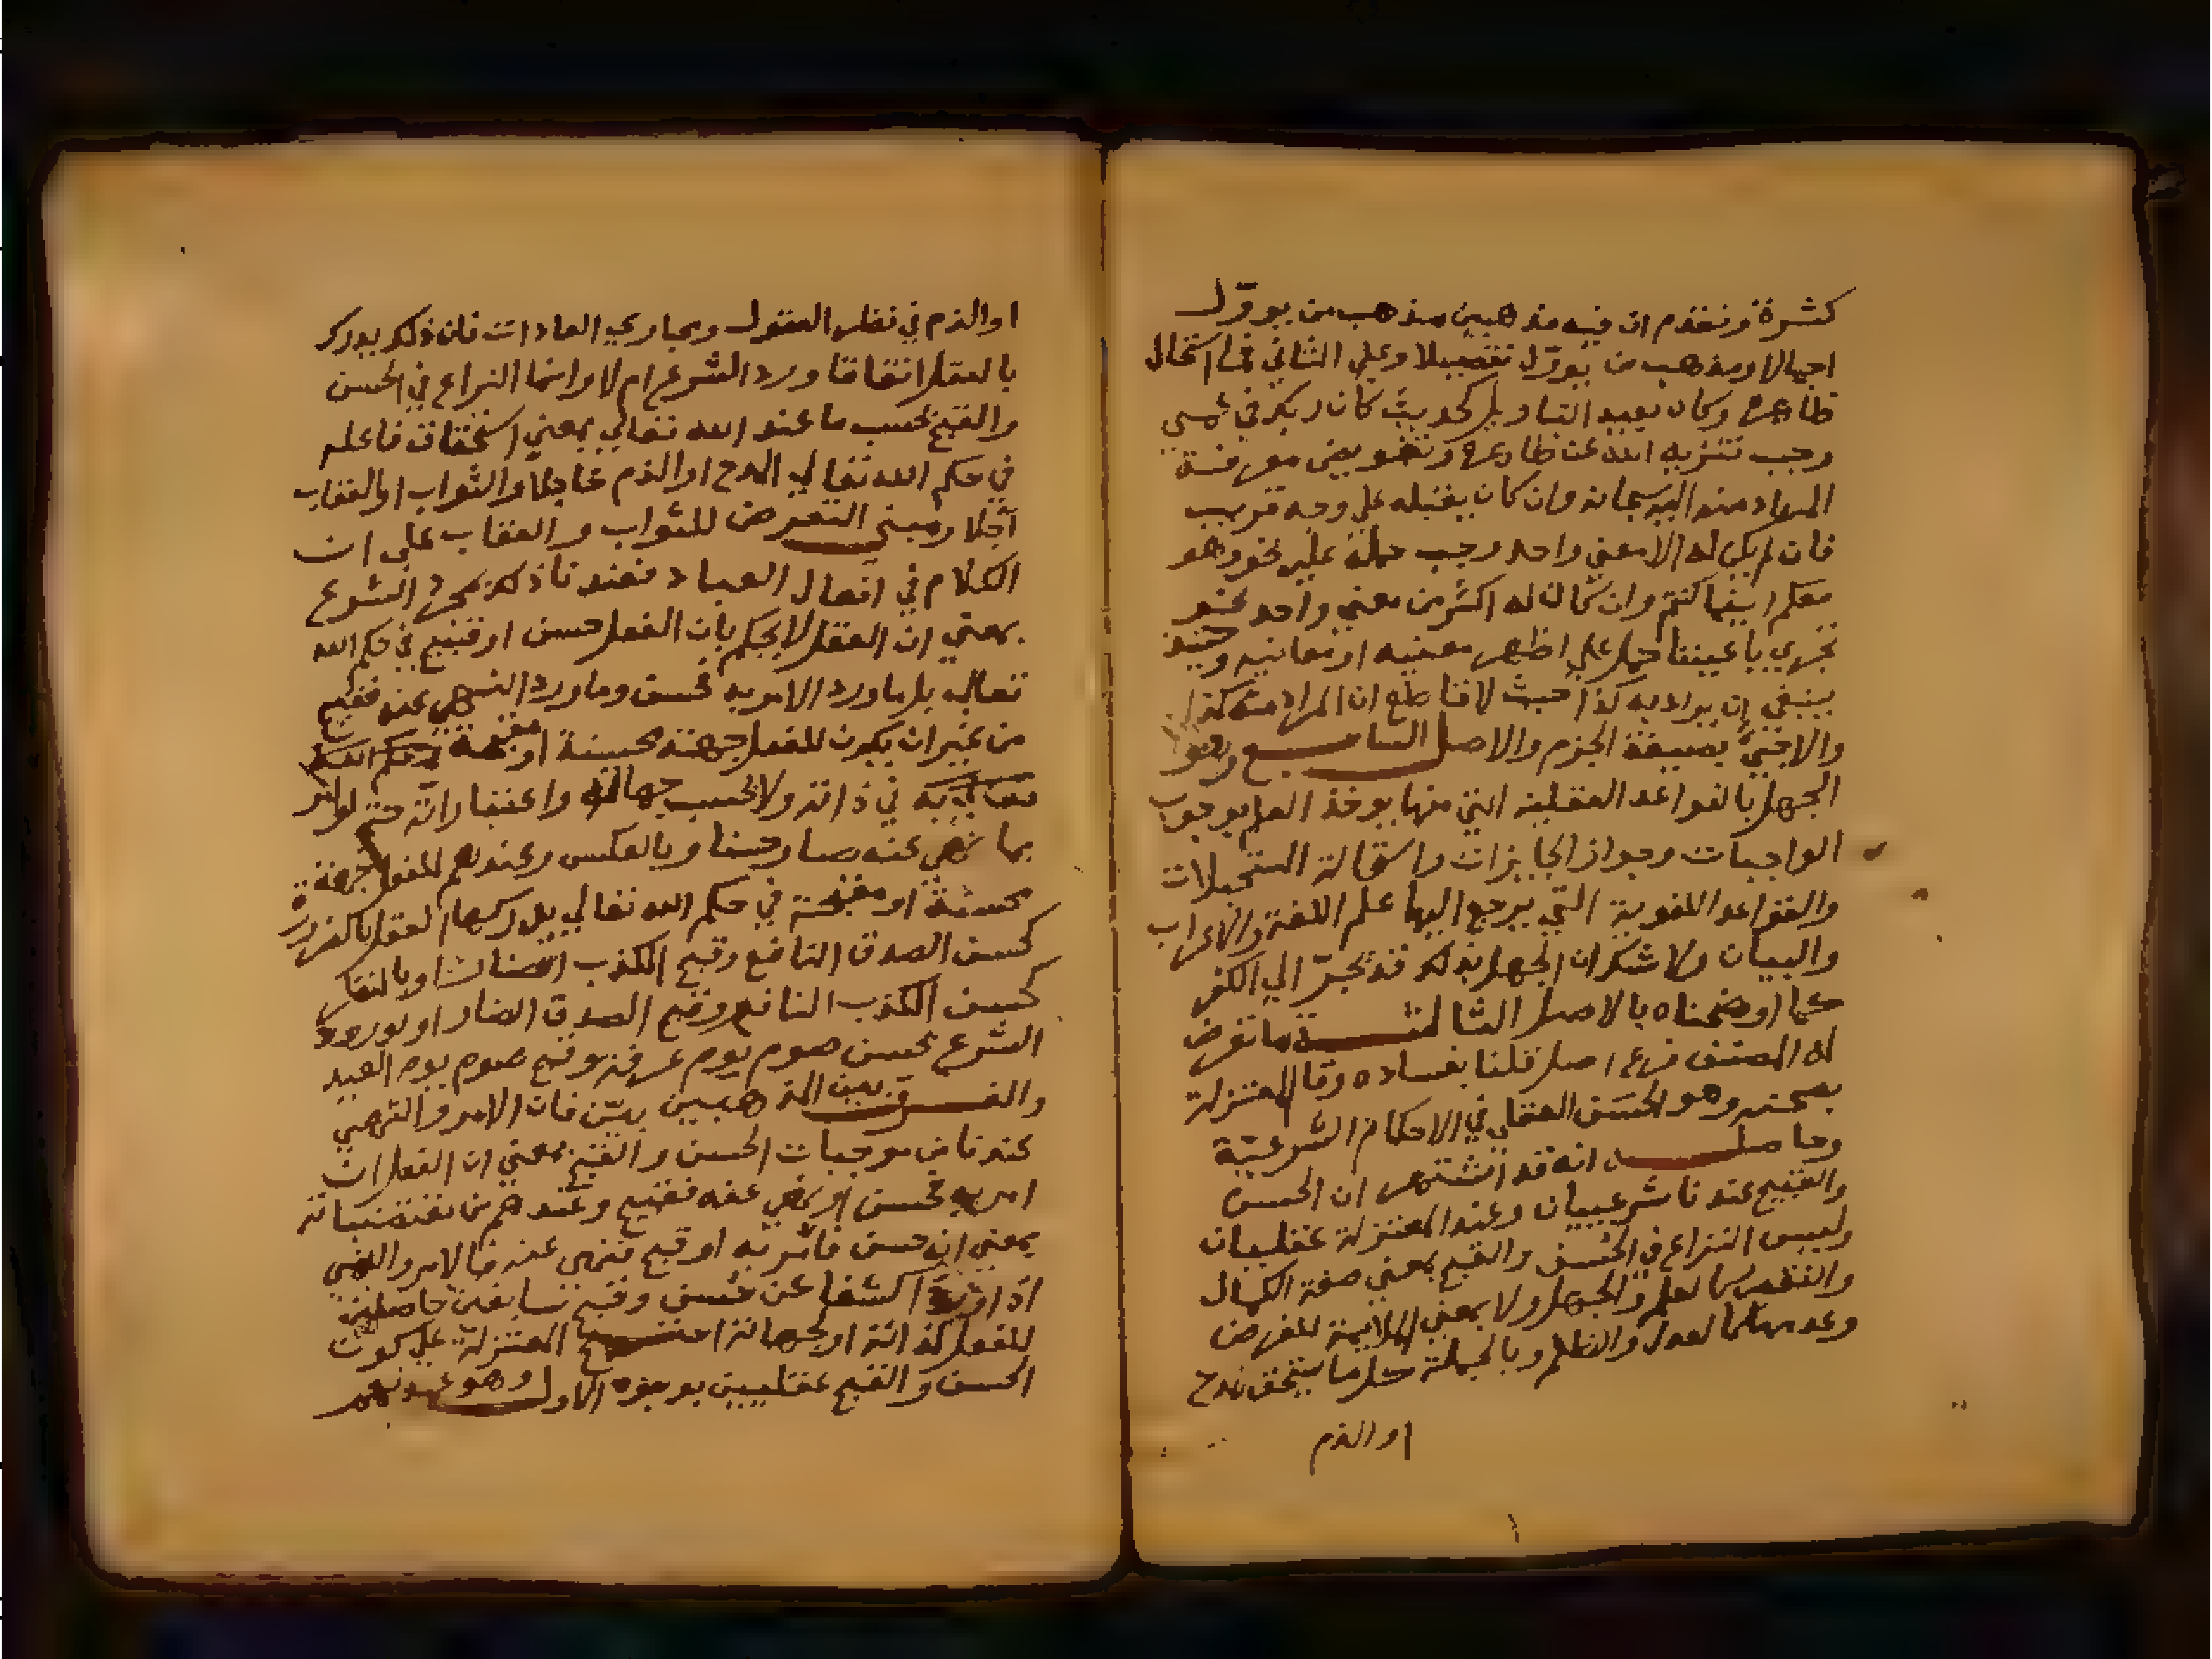 كثيرة وتقدم ان فيه مذهبين مذهب من يووّل
اجمالا ومذهب من يوول تفصيلا وعلي الثاني فما استحال
ظاهره وكان بعيد التاويل كحديث كان ربكم في عمي
وجب تنزيه الله عن ظاهره وتفويض معرفة
المراد منه اليه سبحانه وان كان يقبله علي وجه قريب
فان لم يكن له الا معني واحد وجب حمله عليه نحو وهو
معكم اينما كنتم وان كان له اكثر من معني واحد نحو
تجري باعيننا حمل علي اظهر معنييه او معانيه وحينئذ
ينبغي ان يراد به كذا حيث لا قاطع ان المراد منه كذا
والا فجيء بصيغة الجزم والاصل السابع وهو
الجهل بالقواعد العقلية التي منها يوخذ العلم بوجوب
الواجبات وجواز الجايزات واستحالة المستحيلات
والقواعد اللغوية التي يرجع اليها علم اللغة والاعراب
والبيان ولا شك ان الجهل بذلك قد يجرّ الي الكفر
كما اوضحناه بالاصل الثالث ما تعرض
له المصنف فرع اصل قلنا بفساده وقال المعتزلة
بصحته وهو الحسن العقلي في الاحكام الشرعية
وحاصله انه قد اشتهر ان الحسن
والقبيح عندنا شرعييان وعند المعتزلة عقلييان
وليس النزاع في الحسن والقبح بمعني صفة الكمال
والنقص كالعلم والجهل ولا بمعني الملايمة للغرض
وعدمها كالعدل والظلم وبالجملة كل ما يستحق مدح
او الذم
او الذم في نظر العقول ومجاري العادات فان ذلك يدرك
بالعقل اتفاقا ورد الشرع ام لا وانما النزاع في الحسن
والقبح بحسب ما عند الله تعالي بمعني استحقاق فاعله
في حكم الله تعالي المدح او الذم عاجلا والثواب او العقاب
آجلا ومبني التعرض للثواب والعقاب علي ان
الكلام في افعال العباد فعندنا ذلك بمجرد الشرع
بمعني ان العقل لا يحكم بان الفعل حسن او قبيح في حكم الله
تعالي بل ما ورد الامر به فحسن وما ورد النهي عنه فقبيح
من غير ان يكون للفعل جهة محسنة او مقبحة
في ذاته ولا بحسب جهاته واعتباراته حتي لو امر
بما نهي عنه صار حسنا وبالعكس وعندهم للفعل جهة
محسنة او مقبحة في حكم الله تعالي يدركها العقل بالضرورة
كحسن الصدق النافع وقبح الكذب الضار او بالنظر
كحسن الكذب النافع وقبح الصدق الضار او بورود
الشرع كحسن صوم يوم عرفة وقبح صوم يوم العيد
والفرق بين المذهبين بيّن فان الامر والنهي
عندنا من موجبات الحسن والقبح بمعني ان الفعل ان
امر به فحسن او نهي عنه فقبيح وعندهم من مقتضياته
بمعني انه حسن فأمر به او قبح فنهي عنه فالامر والنهي
اذا كشفا عن حسن وقبح سابقين حاصلين
للفعل لذاته او لجهاته احتج المعتزلة علي كون
الحسن والقبح عقليين بوجوه الاول وهو عمدتهم